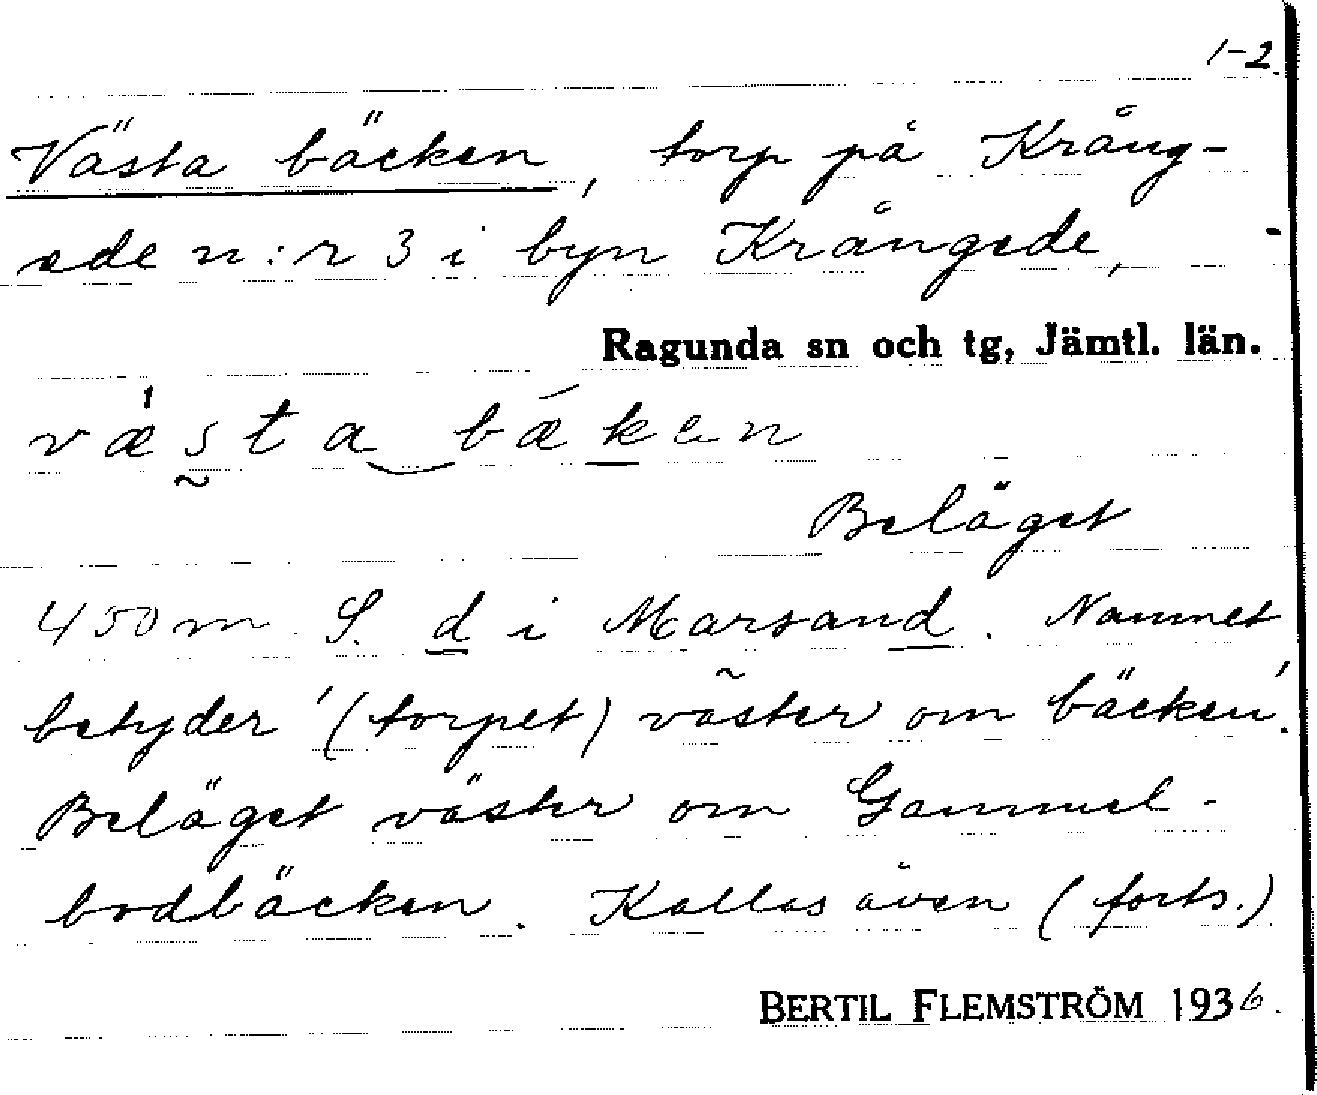 1-2.
Västa bäcken, torp på Kräng-
ede n:r 3 i byn Krångede,
Ragunda sn och tg, Jämtl. län.
væsta bæken
Beläget
450 m S. d i Marsand. Namnet
betyder '(torpet) väster om bäcken'.
Beläget väster om Gammel-
bodbäcken. Kallas även (forts.)
BERTIL FLEMSTRÖM 1936.